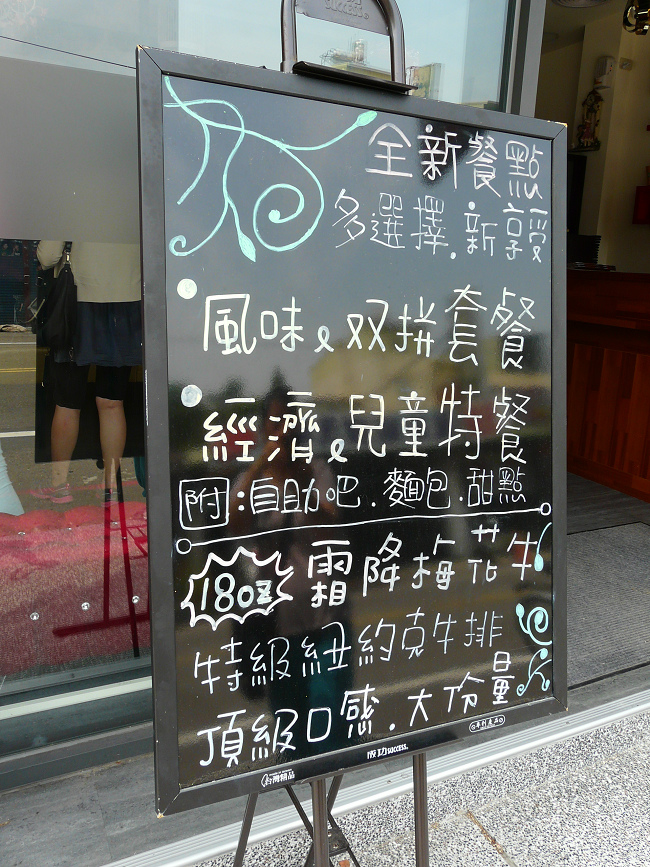 success
全新餐點
多選擇.新享受
風味&双拼套餐
經濟&兒童特餐
附:自助吧.麵包.甜點
18oz 霜降梅花牛
特級紐約克牛排
頂級口感.大份量
成功success.
台灣精品